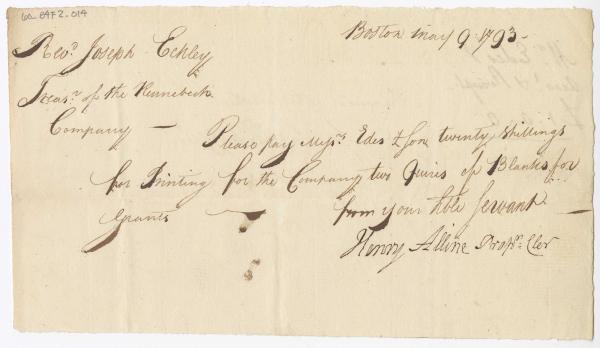 60_8472.014
Boston may 9. 1793-
Revd. Joseph Eckley
Treasr. of the Kennebeck
Company — Please pay Messrs. Edes & Son twenty shillings
for Printing for the Company two Quires of Blanks for
Grants — from your hble Servant —
Henry Alline Proprs. Cler